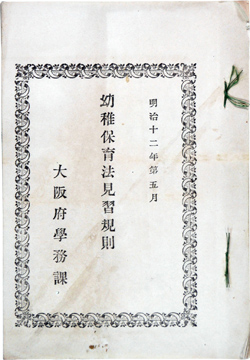 明治十二年第五月
幼稚保育法見習規則
大阪府學務課